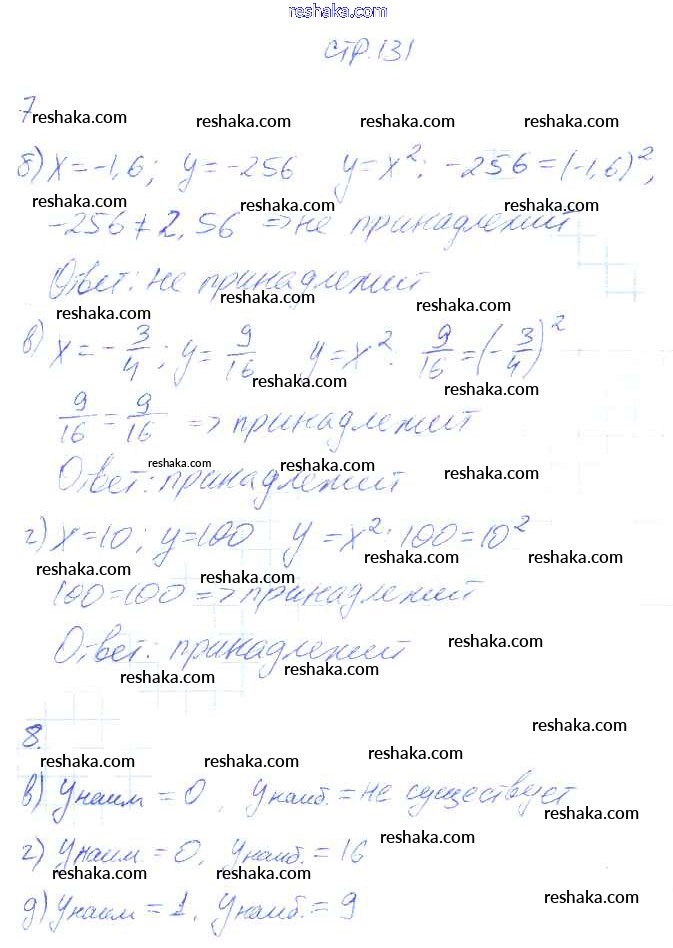 reshaka.com
стр. 131
7
reshaka.com reshaka.com reshaka.com reshaka.com
б) x = -1,6; y = -256 y = x²: -256 = (-1,6)²,
reshaka.com reshaka.com reshaka.com
-256 ≠ 2,56 => не принадлежит
Ответ: не принадлежит
reshaka.com reshaka.com
в) x = -3/4; y = 9/16 y = x²: 9/16 = (-3/4)²
reshaka.com reshaka.com
9/16 = 9/16 => принадлежит
reshaka.com reshaka.com reshaka.com
Ответ: принадлежит
г) x = 10; y = 100 y = x²: 100 = 10²
reshaka.com reshaka.com reshaka.com reshaka.com
100 = 100 => принадлежит
reshaka.com
Ответ: принадлежит
reshaka.com
8.
reshaka.com
reshaka.com reshaka.com reshaka.com reshaka.com
в) yнаим = 0, yнаиб. = не существует
reshaka.com
г) yнаим. = 0, yнаиб. = 16
reshaka.com reshaka.com reshaka.com
д) yнаим = 1, yнаиб. = 9